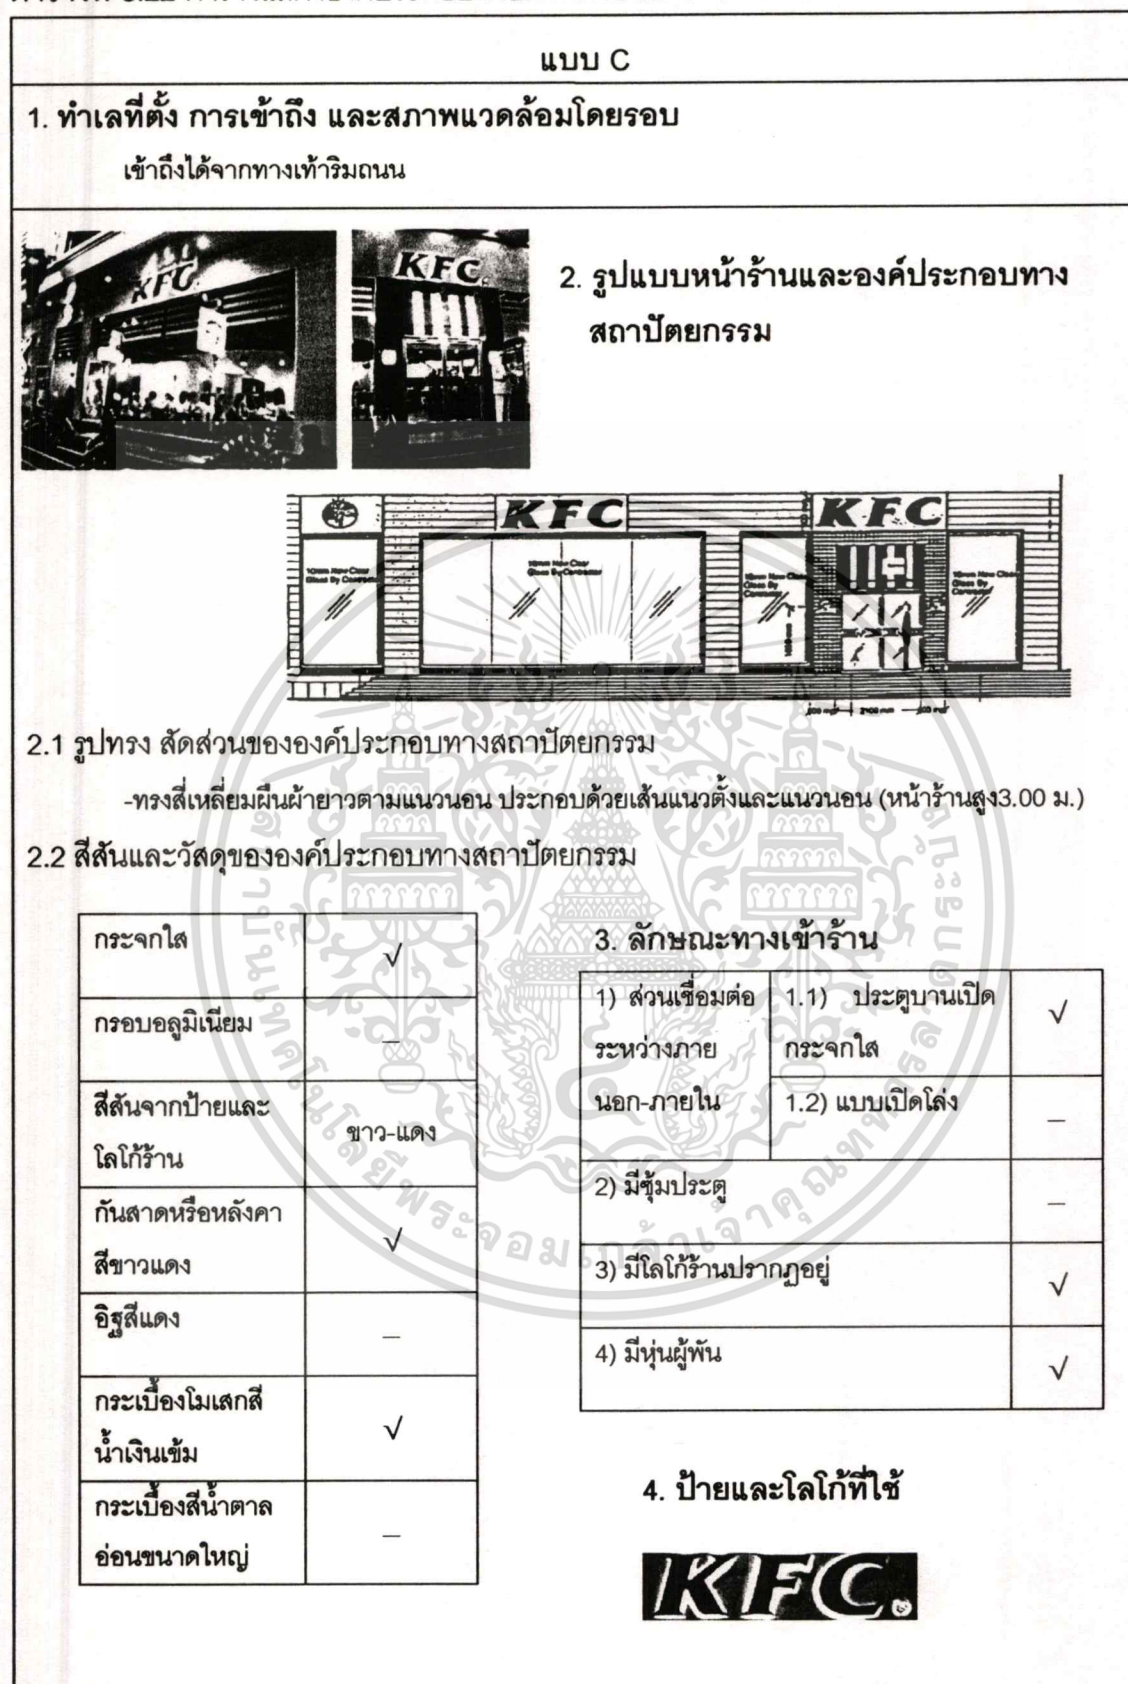 แบบ C
1. ทำเลที่ตั้ง การเข้าถึง และสภาพแวดล้อมโดยรอบ
เข้าถึงได้จากทางเท้าริมถนน
KFC
KFC
2. รูปแบบหน้าร้านและองค์ประกอบทาง
สถาปัตยกรรม
KFC
KFC
10mm New Clear
Glass By Contractor
10mm New Clear
Glass By Contractor
10mm New Clear
Glass By
Contractor
10mm New Clear
Glass By
Contractor
2.1 รูปทรง สัดส่วนขององค์ประกอบทางสถาปัตยกรรม
-ทรงสี่เหลี่ยมผืนผ้ายาวตามแนวนอน ประกอบด้วยเส้นแนวตั้งและแนวนอน (หน้าร้านสูง3.00 ม.)
2.2 สีสันและวัสดุขององค์ประกอบทางสถาปัตยกรรม
กระจกใส √
กรอบอลูมิเนียม –
สีสันจากป้ายและ
โลโก้ร้าน
ขาว-แดง
กันสาดหรือหลังคา
สีขาวแดง
√
อิฐสีแดง –
กระเบื้องโมเสกสี
น้ำเงินเข้ม
√
กระเบื้องสีน้ำตาล
อ่อนขนาดใหญ่
–
3. ลักษณะทางเข้าร้าน
1) ส่วนเชื่อมต่อ
ระหว่างภาย
นอก-ภายใน
1.1) ประตูบานเปิด
กระจกใส
√
1.2) แบบเปิดโล่ง –
2) มีซุ้มประตู –
3) มีโลโก้ร้านปรากฏอยู่ √
4) มีหุ่นผู้พัน √
4. ป้ายและโลโก้ที่ใช้
KFC
สถาบันเทคโนโลยีพระจอมเกล้าเจ้าคุณทหารลาดกระบัง